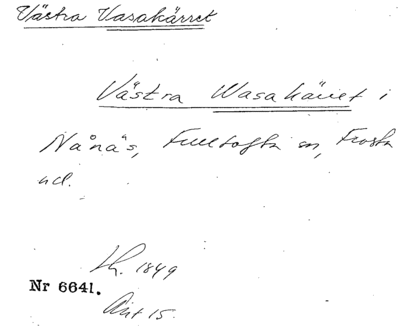 Västra Vasakärret
Västra Wasakärret i
Nånäs, Fulltofta sn, Frosta
hd.
lh. 1849
Nr 6641.
Akt 15.